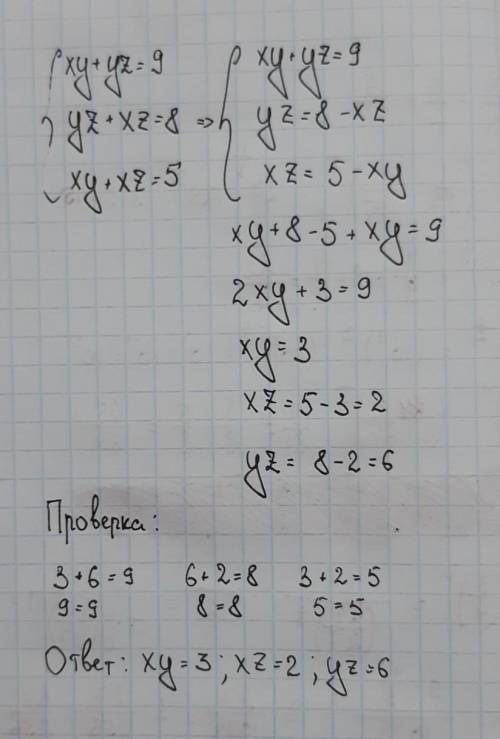 xy+yz=9
yz+xz=8 =>
xy+xz=5
xy+yz=9
yz=8-xz
xz=5-xy
xy+8-5+xy=9
2xy+3=9
xy=3
xz=5-3=2
yz=8-2=6
Проверка:
3+6=9 6+2=8 3+2=5
9=9 8=8 5=5
Ответ: xy=3; xz=2; yz=6